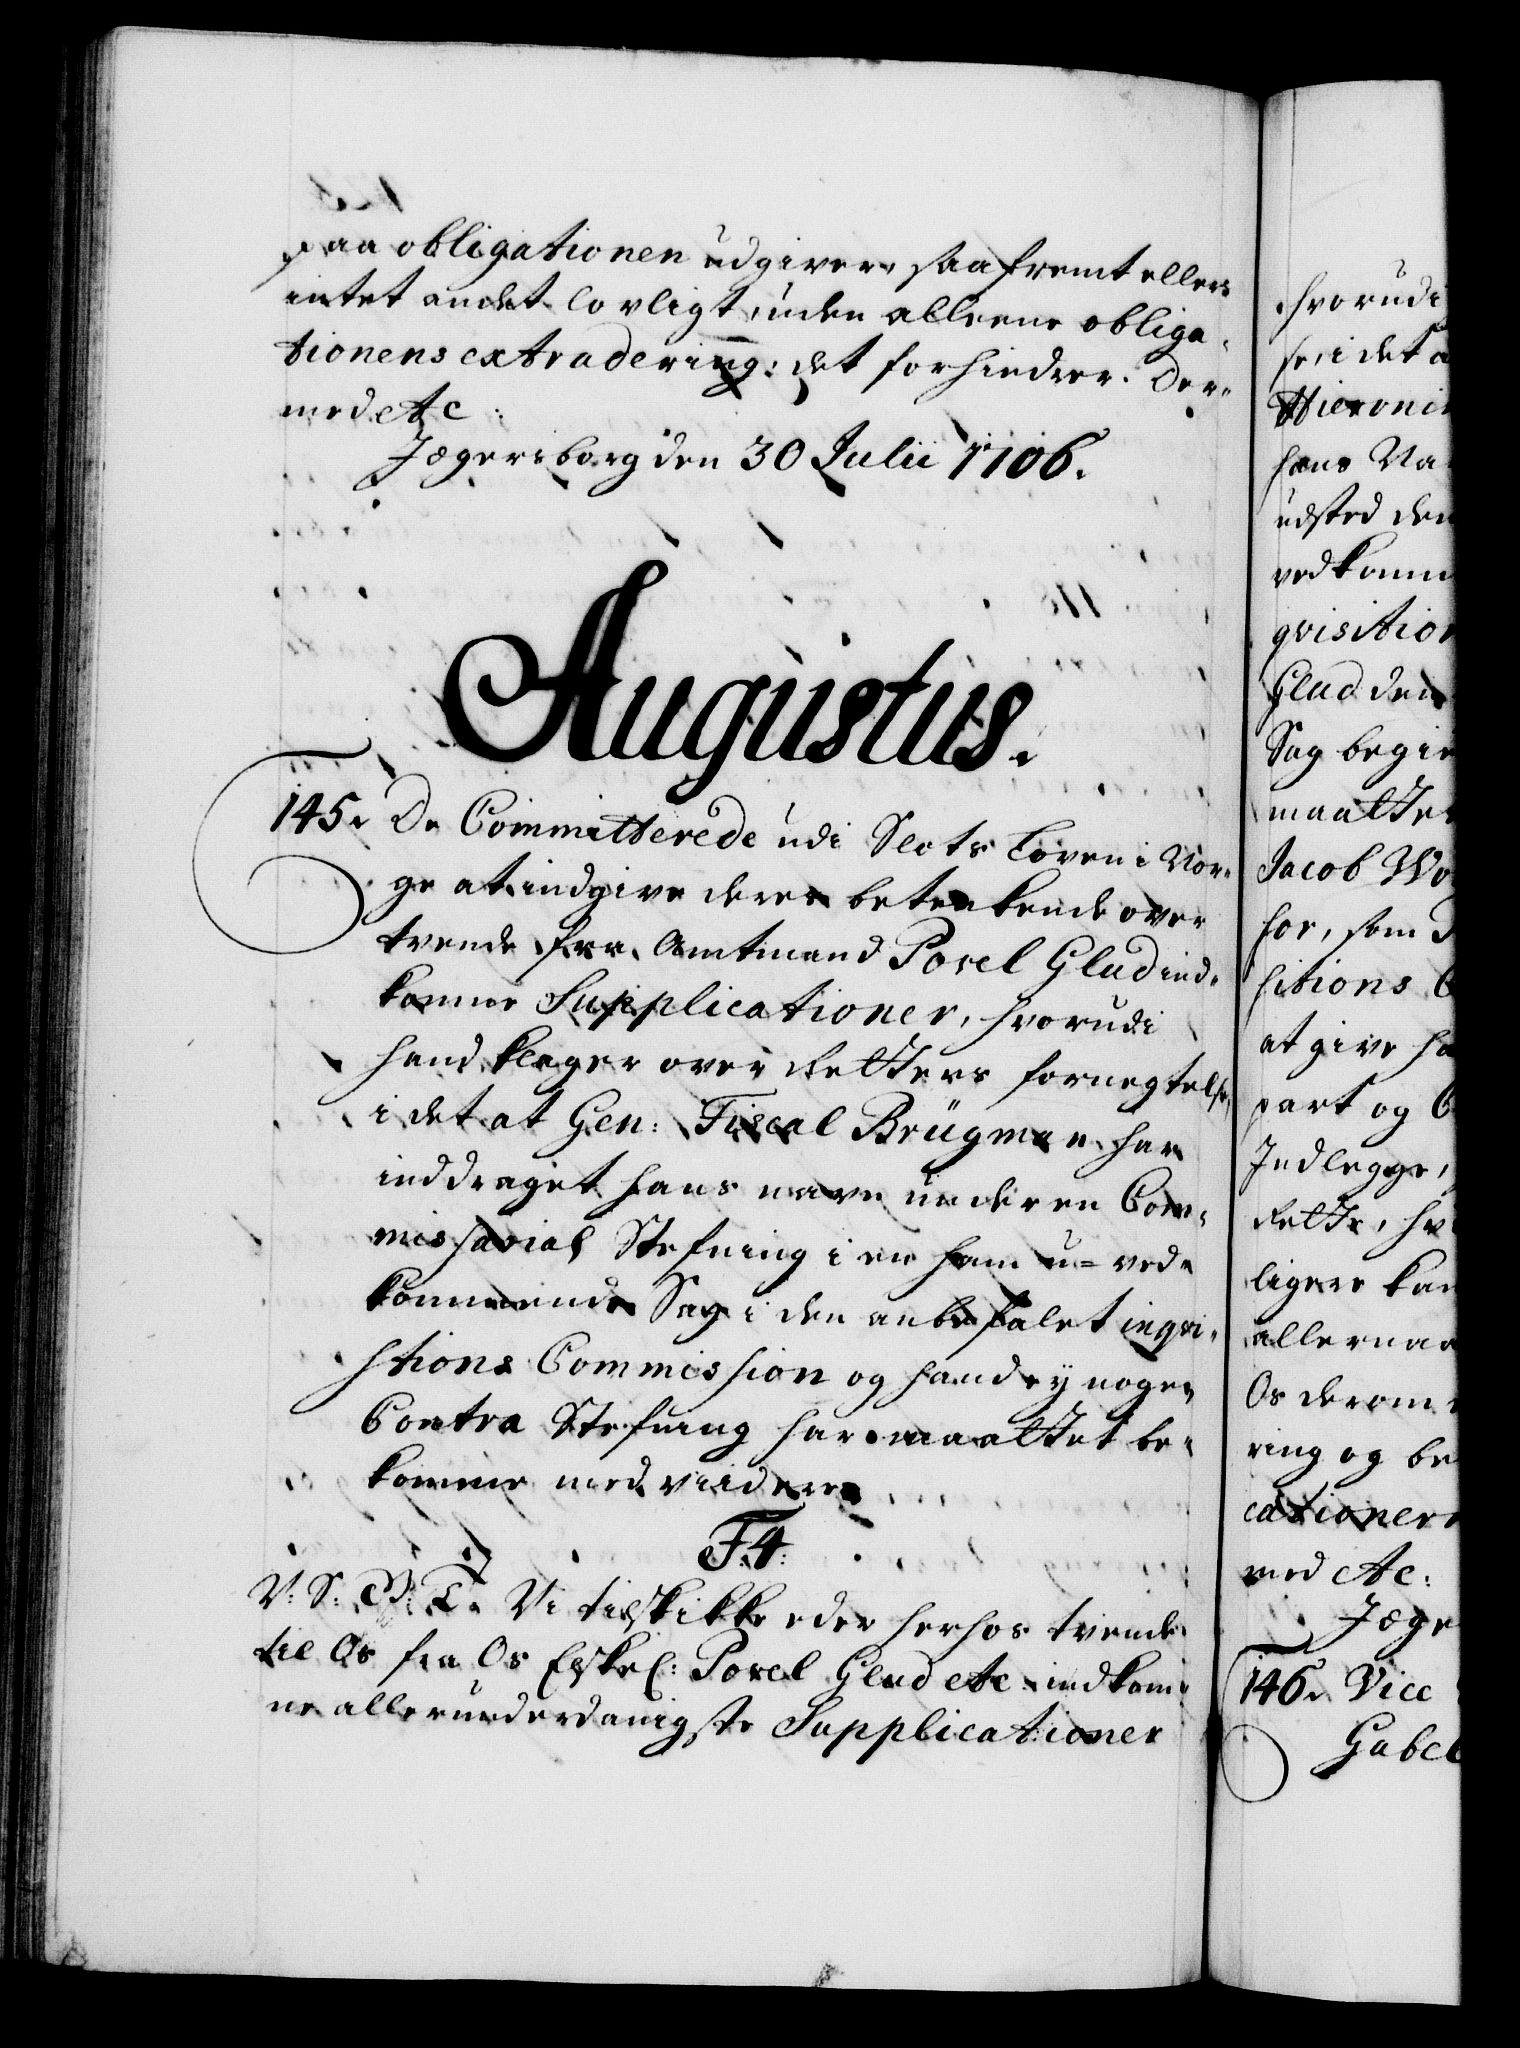 paa obligationen udgiver, saafremt ellers
intet andet lovligt, uden alleene obliga¬
tionens extradering: det forhindrer. Der¬
med etc:
Jægersborg den 30 Julii 1706.
Augustus.
145. De Committerede udi Slots Loven i Nor¬
ge at indgive deres betenkende over
tvende fra Amtmand Povel Glud ind¬
komne Supplicationer, hvorudi
hand klager over Rettens fornegtelse,
i det at Gen: Fiscal Brügman har
inddraget hans navn under en Com¬
missarial Stefning i en ham u=ved¬
kommende Sag i den anbefalet inqvi¬
sitions Commission og hand ey nogen
Contra Stefning har maattet be¬
komme med viidere
F. 4.
V: S: G: T. Vi tilskikke eder herhos tvende
til Os fra Os Elskel: Povel Glud etc indkom¬
ne allerunderdanigste Supplicationer
hvorudi
se, i det a
Hieroni
hans Na
udsted den
vedkomm
qvisition
Glud den
Sag begie
maatte
Jacob Wo
for, som
sitions C
at give ha
part og C
Indlegge,
Rette, hv
ligere kan
allernaa
Os derom
ring og be
cationer
med etc:
Jæge
146. Vice
Gabel